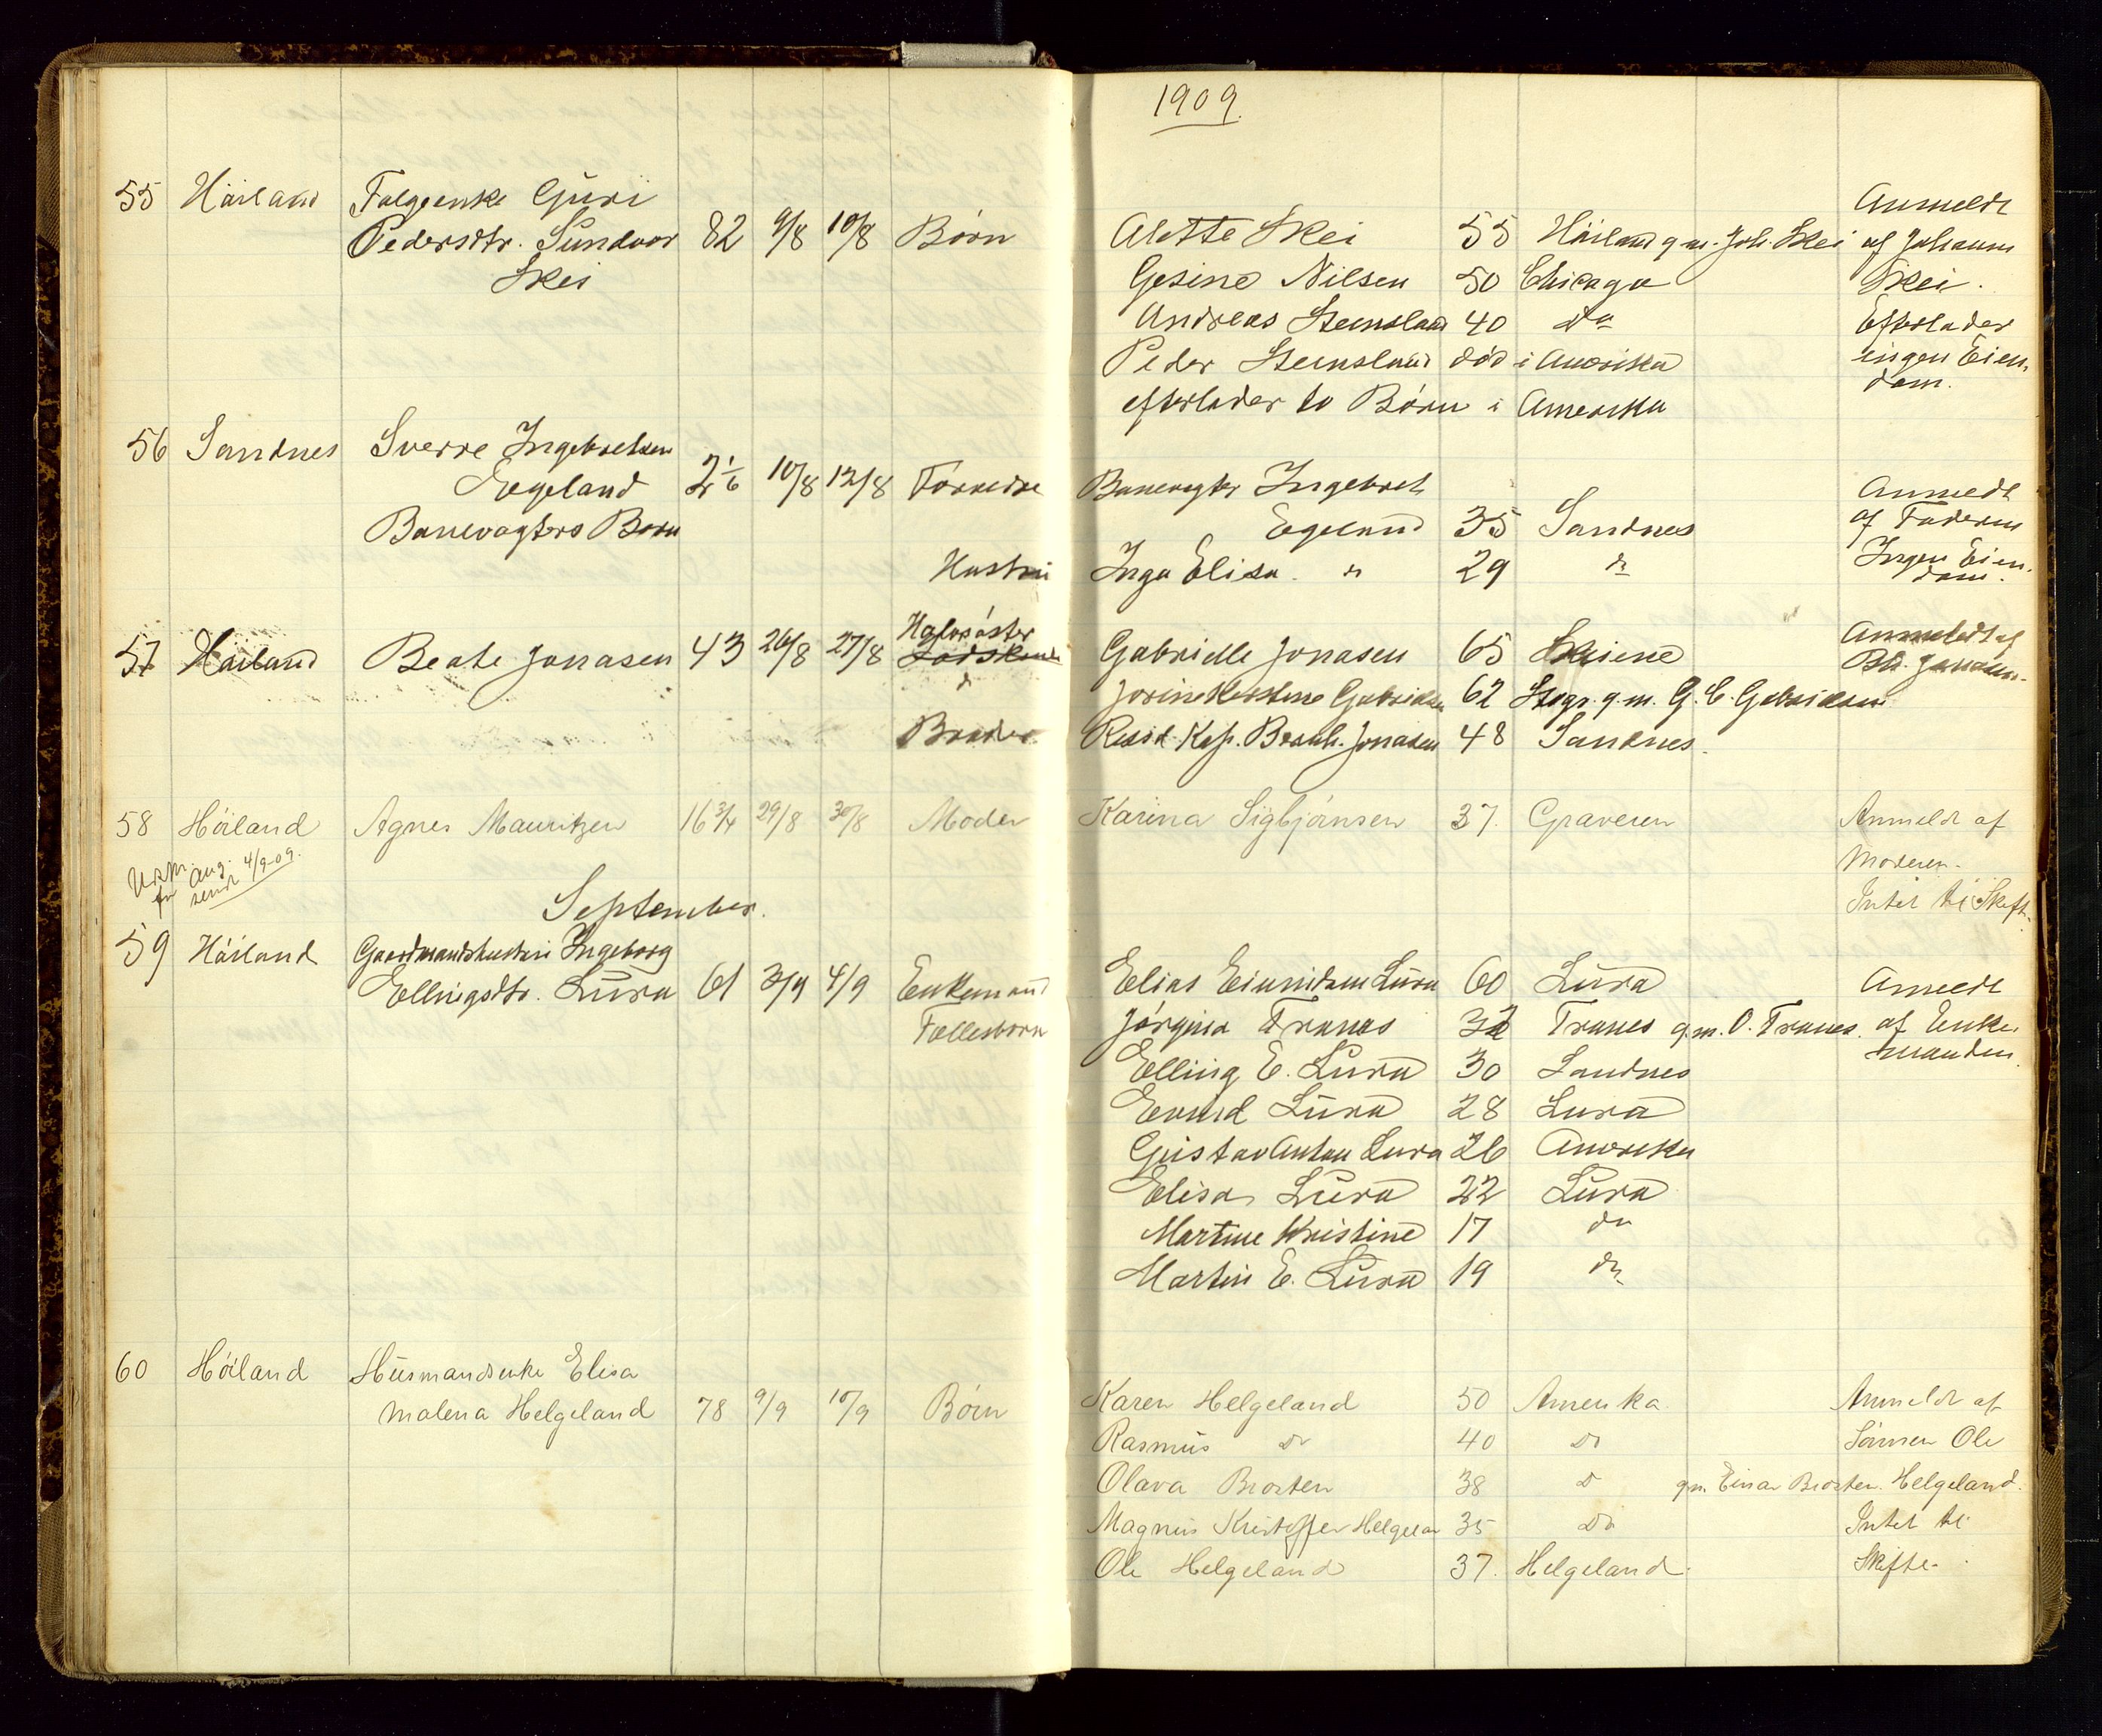 1909.
55 Höiland Folgeenke Guri
Pedersdtr. Sundvor 82 9/8 10/8 Börn
Skei
Alette Skei 55 Höiland g.m. Joh. Skei
Gesine Nilsen 50 Chicago
Andreas Steinsland 40 do
Peder Steinsland död i Amerika
efterlader to Börn i Amerika
Anmeldt
af Johannes
Skei.
Efterlader
ingen Eien-
dom.
56 Sandnes Sverre Ingebretsen
Egeland 2 1/6 10/8 12/8 Forældre
Banevogters Barn
Hustru
Banevogter Ingebret
Egeland 35 Sandnes
Inga Elisa " 29 do
Anmeldt
af Faderen
Ingen Eien-
dom.
57 Höiland Beate Jonasen 43 26/8 27/8 Halvsöster
do
Broder
Gabrielle Jonasen 65 Skiene
Jorine Kirstine Gabrielsen 62 Stvgr. g.m. G. C. Gabrielsen
Resid. Kap. Bernh. Jonasen 48 Sandnes.
Anmeldt af
Bh. Jonasen.
58 Höiland Agnes Mauritzen 16 3/4 29/8 30/8 Moder
Karina Sigbjörnsen 37. Graveren
Anmeldt af
Moderen.
Intet til Skifte.
for Aug.
sendt 4/9-09.
September.
59 Höiland Gaardmandshustru Ingeborg
Ellingsdtr. Lura 61 3/9 4/9 Enkemand
Fællesbörn
Elias Eivindsen Lura 60 Lura
Jörgine Tranes 32 Tranes g.m. O. Tranes.
Elling E. Lura 30 Sandnes
Eivind Lura 28 Lura
Gustav Anton Lura 26 Amerika
Elisa Lura 22 Lura
Martine Kristine 17 do
Martin E. Lura 19 do
Anmeldt
af Enke-
manden.
60 Höiland Husmandsenke Elisa
Malena Helgeland 78 9/9 10/9 Börn
Karen Helgeland 50 Amerika
Rasmus do 40 do
Olava Brosten 38 do g.m. Einar Brosten.
Magnus Kristoffer Helgeland 35 do
Ole Helgeland 37. Helgeland.
Anmeldt af
Sönnen Ole
Helgeland.
Intet til
Skifte.